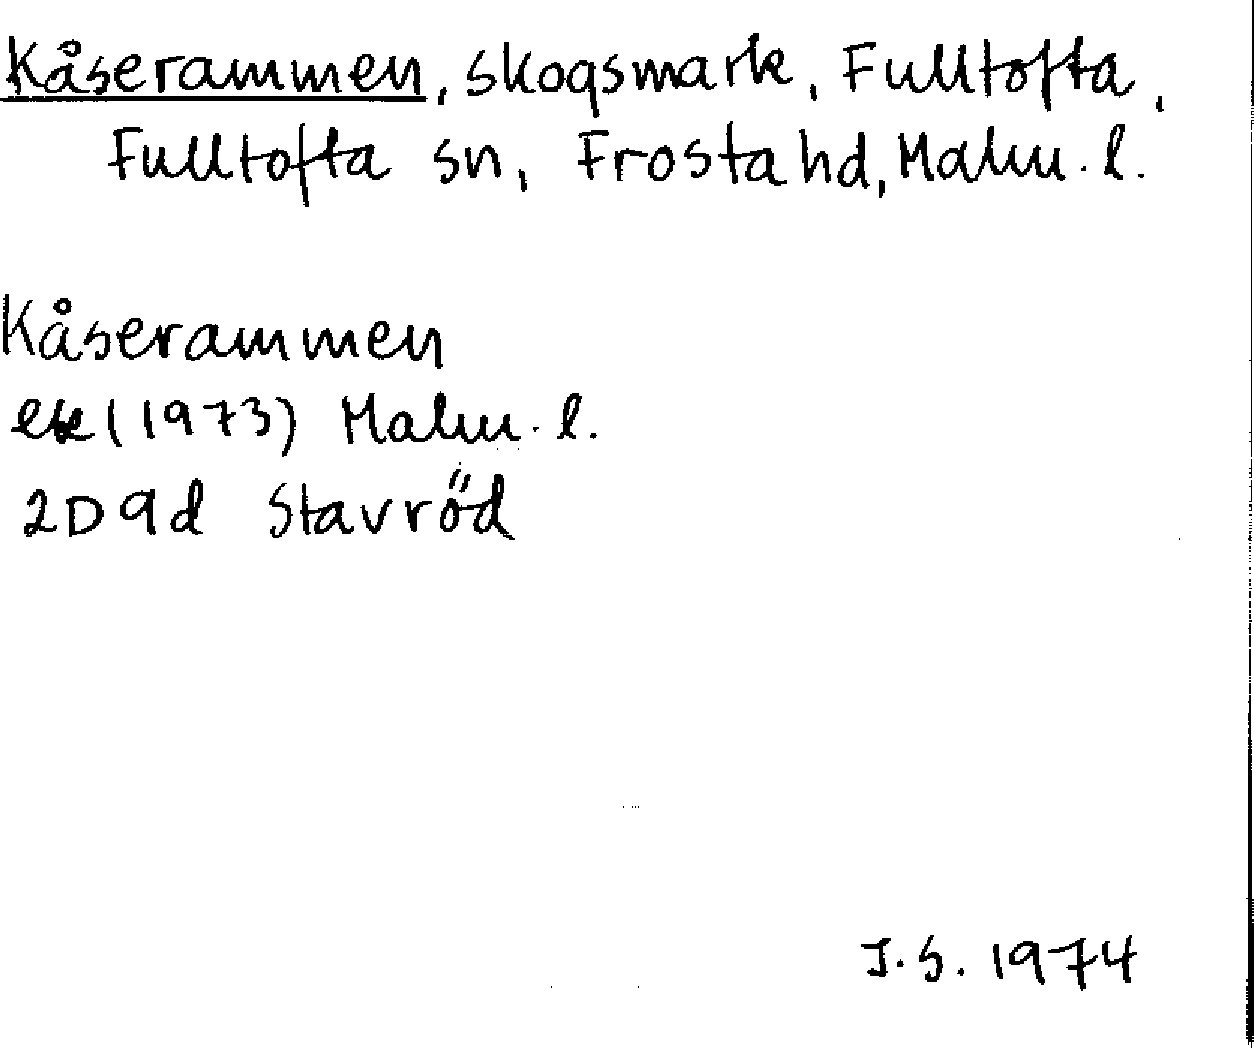 Kåserammen, skogsmark, Fulltofta,
Fulltofta sn, Frosta hd, Malm. l.
Kåserammen
ek (1973) Malm. l.
2D 9d Stavröd
J.S. 1974